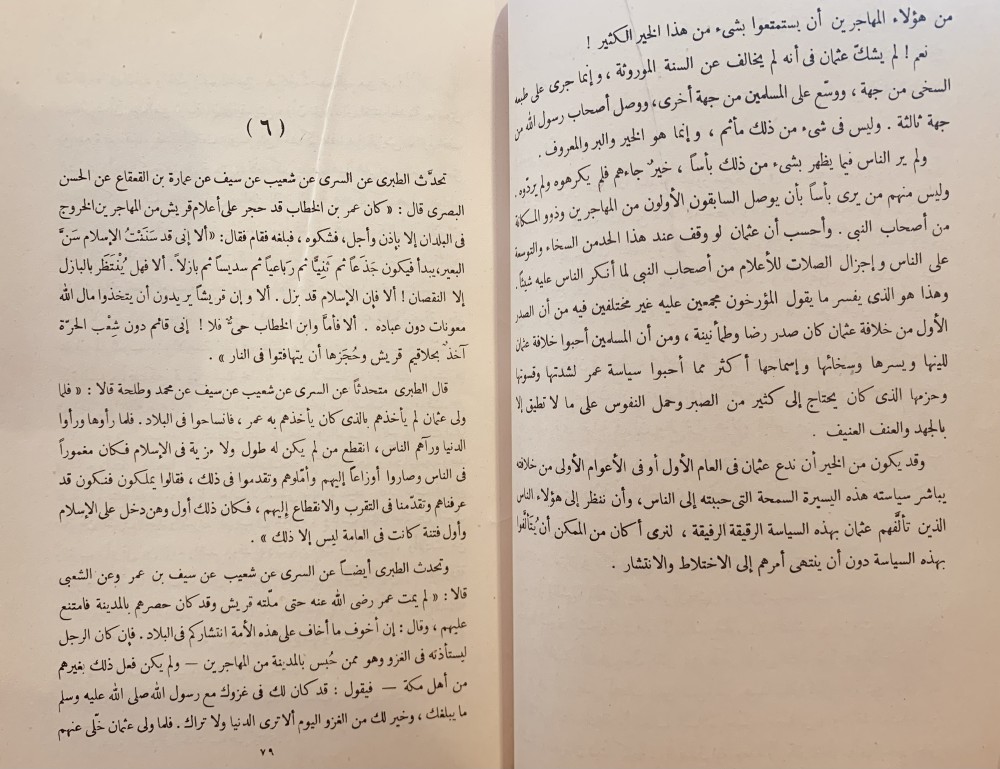 من هؤلاء المهاجرين أن يستمتعوا بشىء من هذا الخير الكثير !
نعم ! لم يشك عثمان فى أنه لم يخالف عن السنة الموروثة ، وإنما جرى على طبعه
السخى من جهة ، ووسّع على المسلمين من جهة أخرى، ووصل أصحاب رسول الله من
جهة ثالثة . وليس فى شىء من ذلك مأثم ، وإنما هو الخير والبر والمعروف .
ولم ير الناس فيما يظهر بشىء من ذلك بأساً ، خيرٌ جاءهم فلم يكرهوه ولم يردّوه .
وليس منهم من يرى بأساً بأن يوصل السابقون الأولون من المهاجرين وذوو المكانة
من أصحاب النبى . وأحسب أن عثمان لو وقف عند هذا الحدمن السخاء والتوسعة
على الناس وإجزال الصلات للأعلام من أصحاب النبى لما أنكر الناس عليه شيئاً .
وهذا هو الذى يفسر ما يقول المؤرخون مجمعين عليه غير مختلفين فيه من أن الصدر
الأول من خلافة عثمان كان صدر رضا وطمأنينة ، ومن أن المسلمين أحبوا خلافة عثمان
للينها ويسرها وسخائها وإسماحها أكثر مما أحبوا سياسة عمر لشدتها وقسوتها
وحزمها الذى كان يحتاج إلى كثير من الصبر وحمل النفوس على ما لا تطيق إلا
بالجهد والعنف العنيف .
وقد يكون من الخير أن ندع عثمان فى العام الأول أو فى الأعوام الأولى من خلافته
يباشر سياسته هذه اليسيرة السمحة التى حببته إلى الناس، وأن ننظر إلى هؤلاء الناس
الذين تألَّفهم عثمان بهذه السياسة الرقيقة الرفيقة ، لنرى أكان من الممكن أن يُتَألَّفوا
بهذه السياسة دون أن ينتهى أمرهم إلى الاختلاط والانتشار .
( ٦ )
تحدَّث الطبرى عن السرى عن شعيب عن سيف عن عمارة بن القعقاع عن الحسن
البصرى قال : «كان عمر بن الخطاب قد حجر على أعلام قريش من المهاجرين الخروج
فى البلدان إلا بإذن وأجل، فشكوه ، فبلغه فقام فقال: «ألا إنى قد سَنَنْتُ الإسلام سَنَّ
البعير، يبدأ فيكون جَذَعاً ثم ثَنِيًّا ثم رَبَاعياً ثم سديساً ثم بازلاً . ألا فهل يُنْتَظَر بالبازل
إلا النقصان ! ألا فإن الإسلام قد بزل . ألا وإن قريشاً يريدون أن يتخذوا مال الله
معونات دون عباده . ألا فأمَّا وابن الخطاب حىٌّ فلا ! إنى قائم دون شِعْب الحرّة
آخذٌ بحلاقيم قريش وحُجَزها أن يتهافتوا فى النار » .
قال الطبرى متحدثاً عن السرى عن شعيب عن سيف عن محمد وطلحة قالا : « فلما
ولى عثمان لم يأخذهم بالذى كان يأخذهم به عمر ، فانساحوا فى البلاد . فلما رأوها ورأوا
الدنيا ورآهم الناس ، انقطع من لم يكن له طول ولا مزية فى الإسلام فكان مغموراً
فى الناس وصاروا أوزاعاً إليهم وأمّلوهم وتقدموا فى ذلك ، فقالوا يملكون فنكون قد
عرفناهم وتقدّمنا فى التقرب والانقطاع إليهم ، فكان ذلك أول وهن دخل على الإسلام
وأول فتنة كانت فى العامة ليس إلا ذلك » .
وتحدث الطبرى أيضاً عن السرى عن شعيب عن سيف بن عمر وعن الشعبى
قالا : « لم يمت عمر رضى الله عنه حتى ملّته قريش وقد كان حصرهم بالمدينة فامتنع
عليهم ، وقال : إن أخوف ما أخاف على هذه الأمة انتشاركم فى البلاد . فإن كان الرجل
ليستأذنه فى الغزو وهو ممن حُبس بالمدينة من المهاجرين — ولم يكن فعل ذلك بغيرهم
من أهل مكة — فيقول : قد كان لك فى غزوك مع رسول الله صلى الله عليه وسلم
ما يبلغك ، وخير لك من الغزو اليوم ألا ترى الدنيا ولا تراك . فلما ولى عثمان خلّى عنهم
٧٩